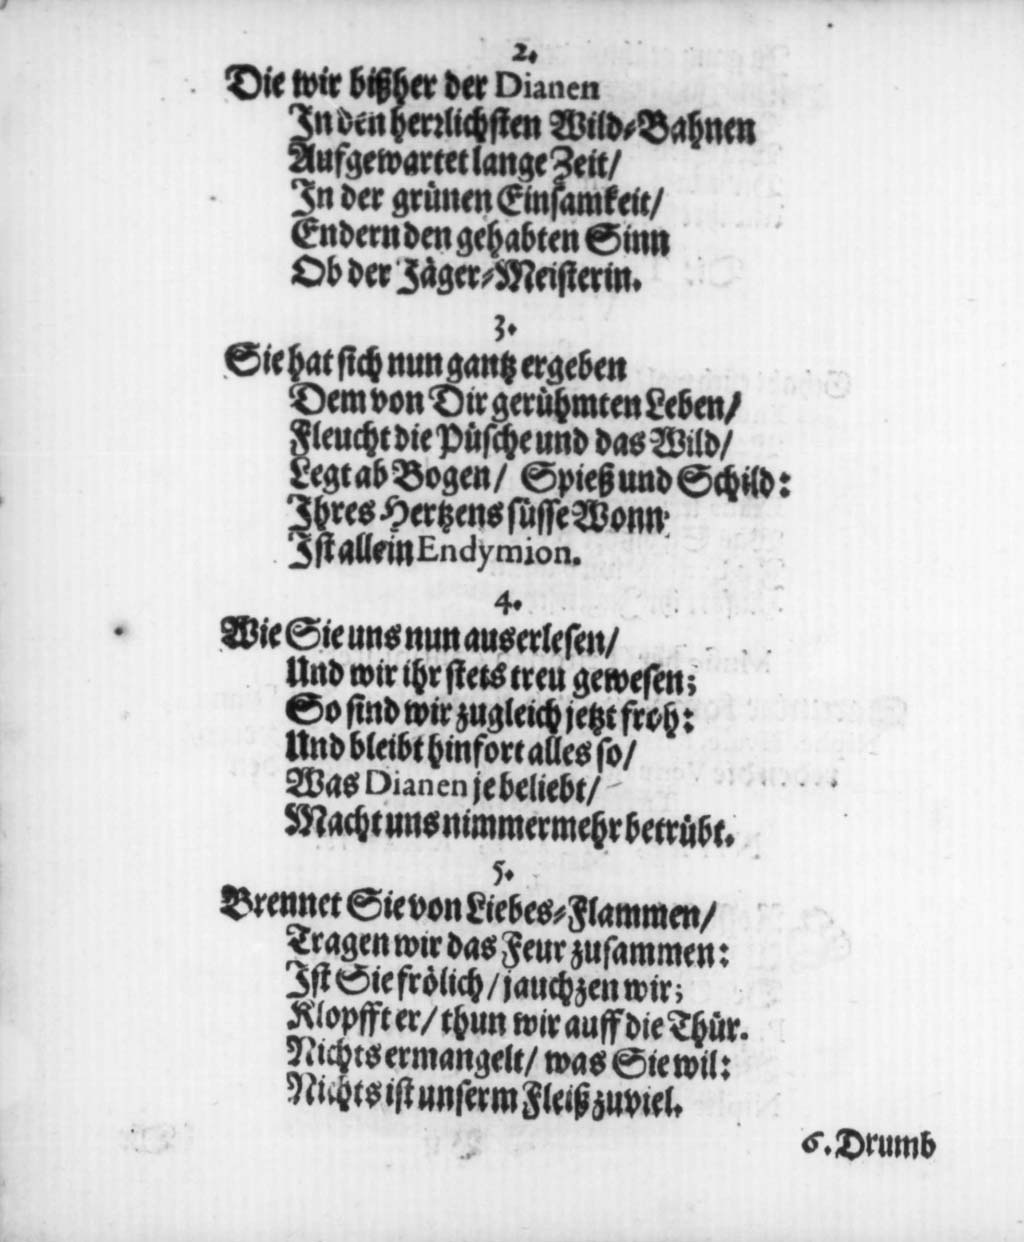 2.
Die wir bißher der Dianen
In den herrlichsten Wild-Bahnen
Aufgewartet lange Zeit/
In der grünen Einsamkeit/
Endern den gehabten Sinn
Ob der Jäger-Meisterin.
3.
Sie hat sich nun gantz ergeben
Dem von Dir gerühmten Leben/
Fleucht die Püsche und das Wild/
Legt ab Bogen/ Spieß und Schild:
Ihres Hertzens süsse Wonn
Ist allein Endymion.
4.
Wie Sie uns nun auserlesen/
Und wir ihr stets treu gewesen;
So sind wir zugleich jetzt froh:
Und bleibt hinfort alles so/
Was Dianen je beliebt/
Macht uns nimmermehr betrübt.
5.
Brennet Sie von Liebes-Flammen/
Tragen wir das Feur zusammen:
Ist Sie frölich/ jauchzen wir;
Klopfft er/ thun wir auff die Thür.
Nichts ermangelt/ was Sie wil:
Nichts ist unserm Fleiß zuviel.
6. Drumb